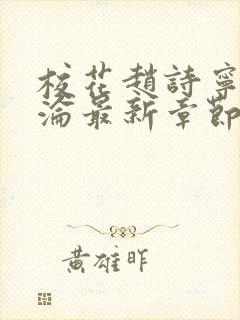 校花趙詩寧
淪最新章節
黃雄昨